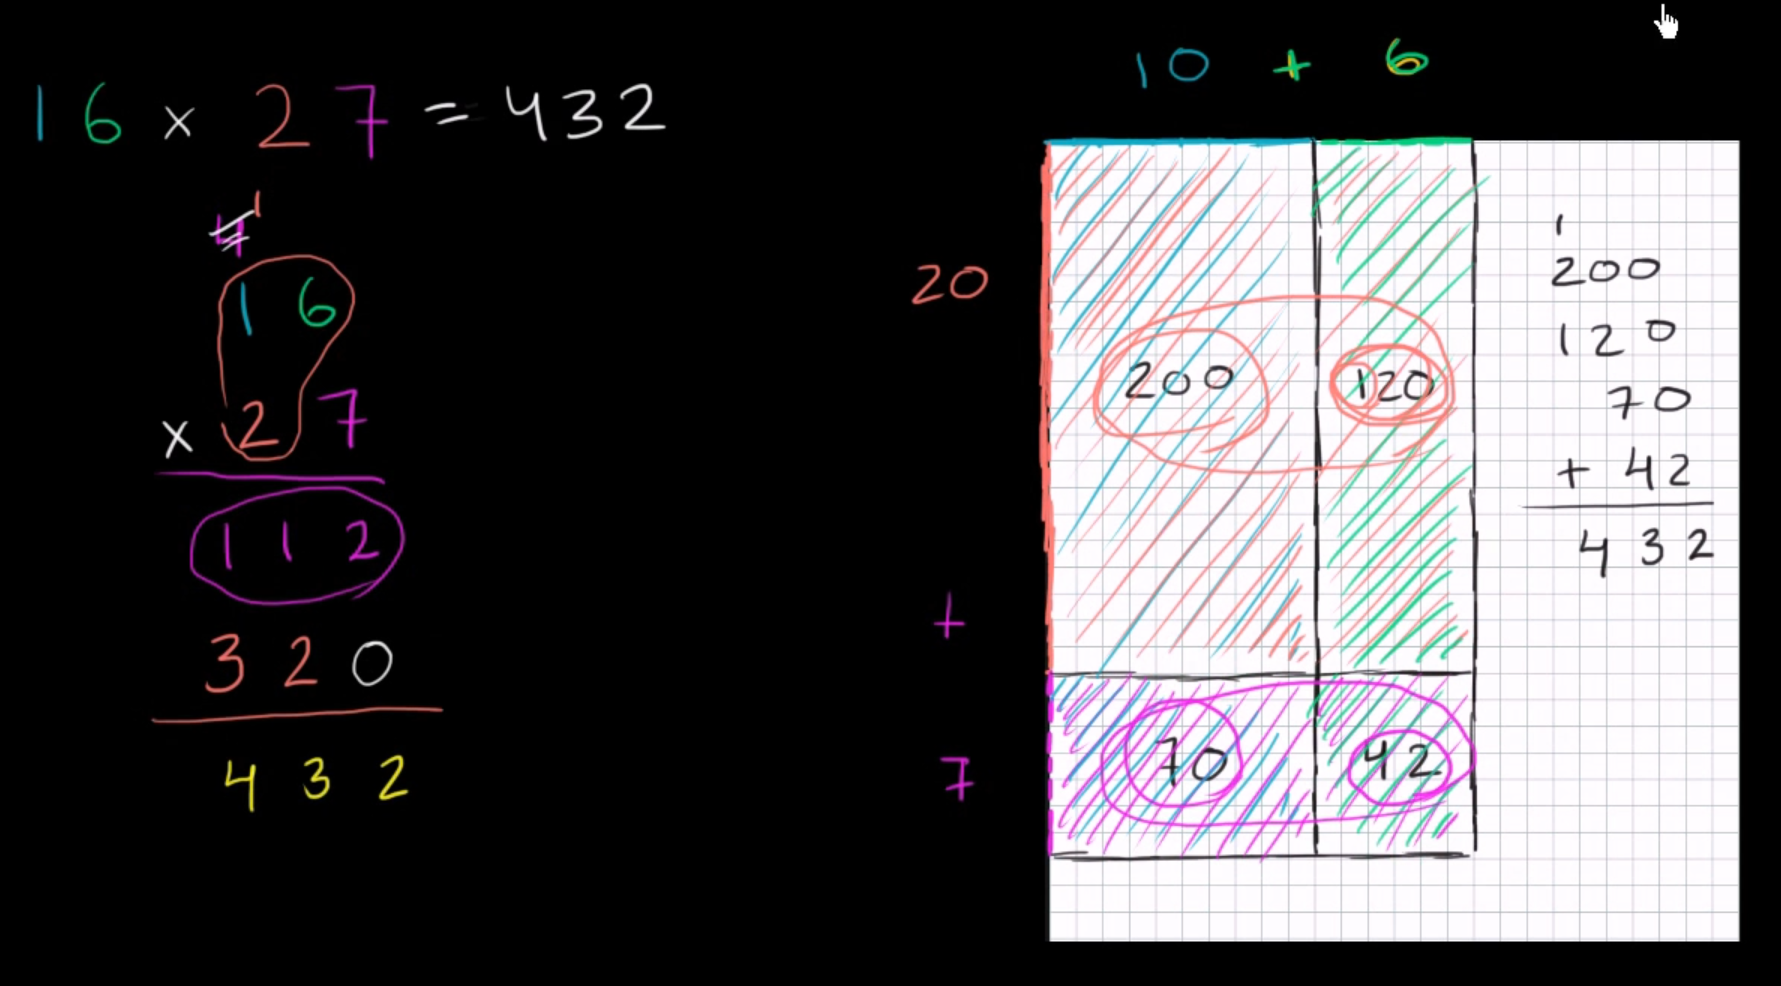 16 × 27 = 432
4 1
16
× 27
112
320
432
10 + 6
20
+
7
200 120
70 42
1
200
120
70
+ 42
432